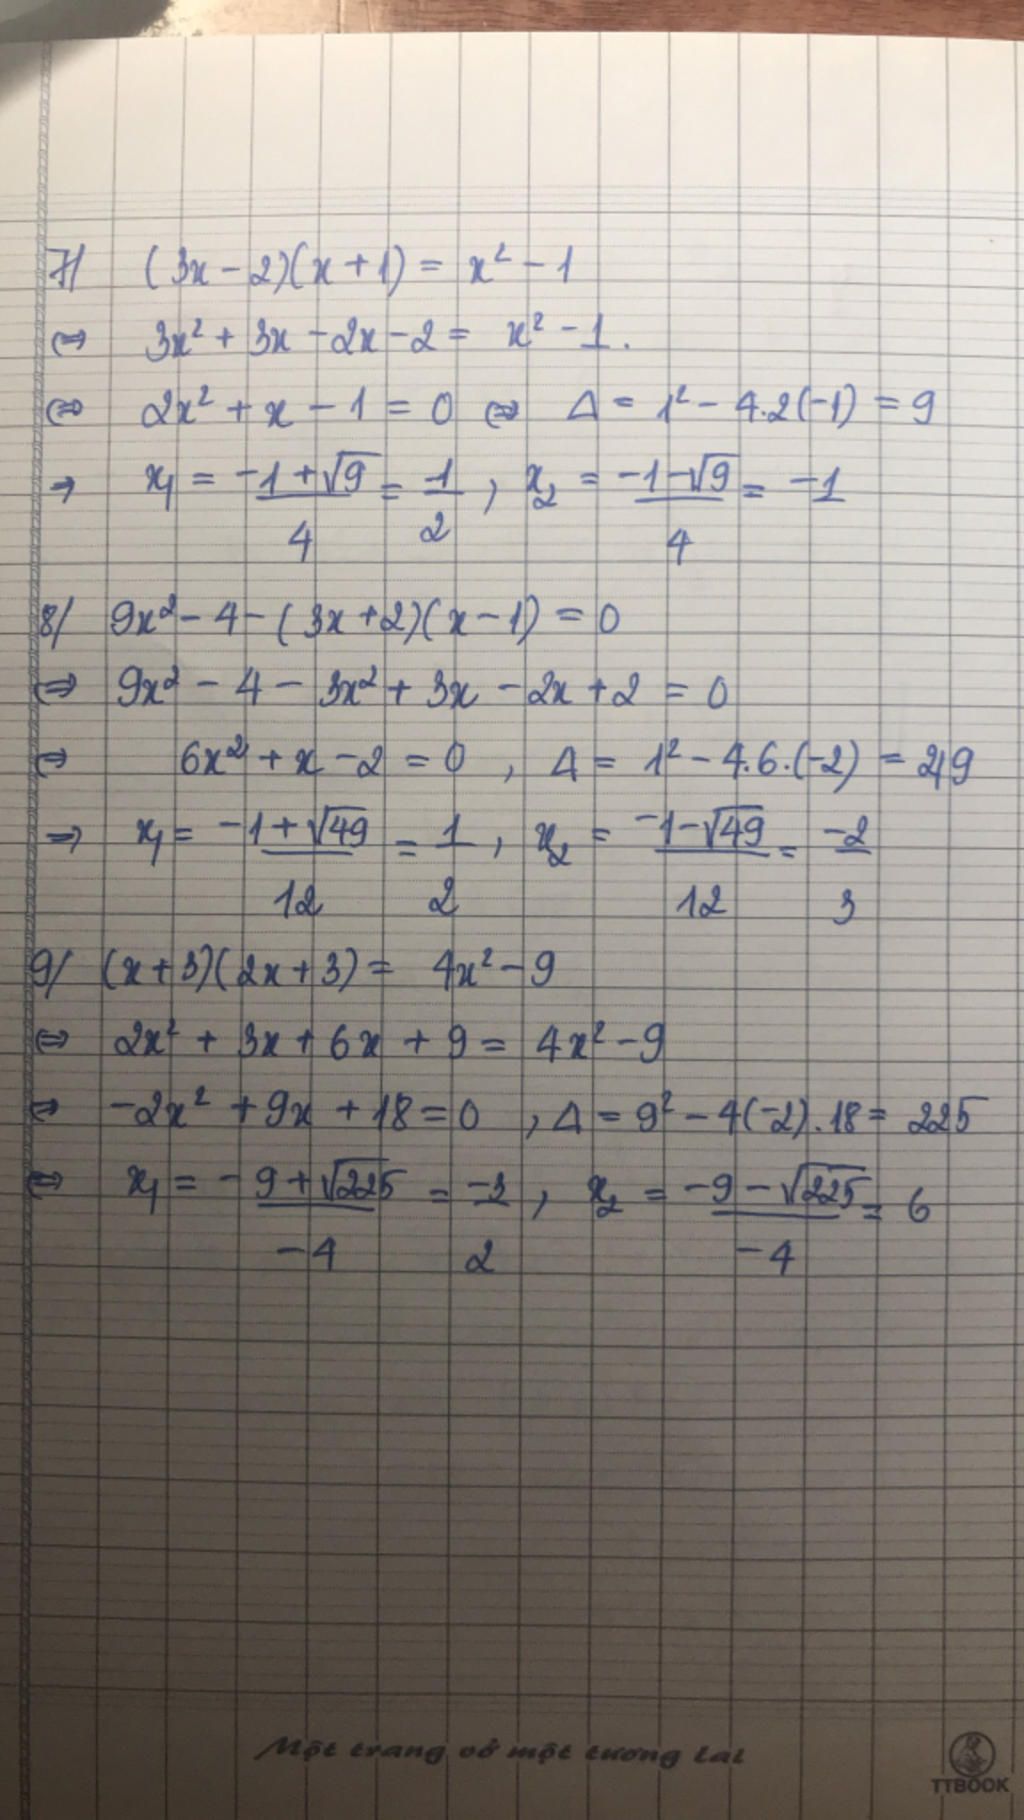 7/ (3x - 2)(x + 1) = x² - 1
⇔ 3x² + 3x - 2x - 2 = x² - 1.
⇔ 2x² + x - 1 = 0 ⇔ Δ = 1² - 4.2(-1) = 9
→ x₁ = (-1 + √9)/4 = 1/2, x₂ = (-1 - √9)/4 = -1
8/ 9x² - 4 - (3x + 2)(x - 1) = 0
⇔ 9x² - 4 - 3x² + 3x - 2x + 2 = 0
⇔ 6x² + x - 2 = 0, Δ = 1² - 4.6.(-2) = 49
⇒ x₁ = (-1 + √49)/12 = 1/2, x₂ = (-1 - √49)/12 = -2/3
9/ (x + 3)(2x + 3) = 4x² - 9
⇔ 2x² + 3x + 6x + 9 = 4x² - 9
⇔ -2x² + 9x + 18 = 0, Δ = 9² - 4(-2).18 = 225
⇔ x₁ = (-9 + √225)/-4 = -3/2, x₂ = (-9 - √225)/-4 = 6
Một trang vở một tương lai
TTBOOK